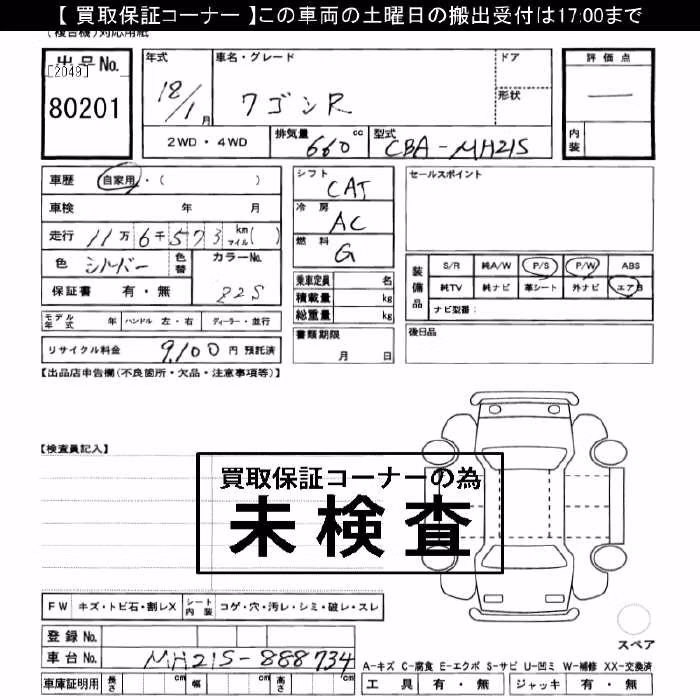 【 買取保証コーナー 】この車両の土曜日の搬出受付は17:00まで
(複合機)対応用紙
出品No.
[2049]
80201
年式
18/1月
車名・グレード
ワゴンR
ドア
形状
評価点
一
内装
2WD・4WD
排気量 660 cc
型式 CBA-MH21S
車歴 自家用・( )
車検 年 月
走行 11万6千573 km マイル( )
色 シルバー 色替
カラーNo. Z2S
保証書 有・無
シフト CAT
冷房 AC
燃料 G
セールスポイント
乗車定員 名
積載量 kg
総重量 kg
装備品
S/R 純A/W P/S P/W ABS
純TV 純ナビ 革シート 外ナビ エアB
ナビ型番:
モデル年式 年 ハンドル 左・右 ディーラー・並行
リサイクル料金 9,100円 預託済
書類期限
月 日
後日品
【出品店申告欄(不良箇所・欠品・注意事項等)】
【検査員記入】
買取保証コーナーの為
未検査
FW キズ・トビ石・割レX シート内装 コゲ・穴・汚レ・シミ・破レ・スレ
スペア
登録No.
車台No. MH21S-888734
A-キズ C-腐食 E-エクボ S-サビ U-凹ミ W-補修 XX-交換済
車庫証明用 長さ cm 幅 cm 高さ cm
工具 有・無 ジャッキ 有・無